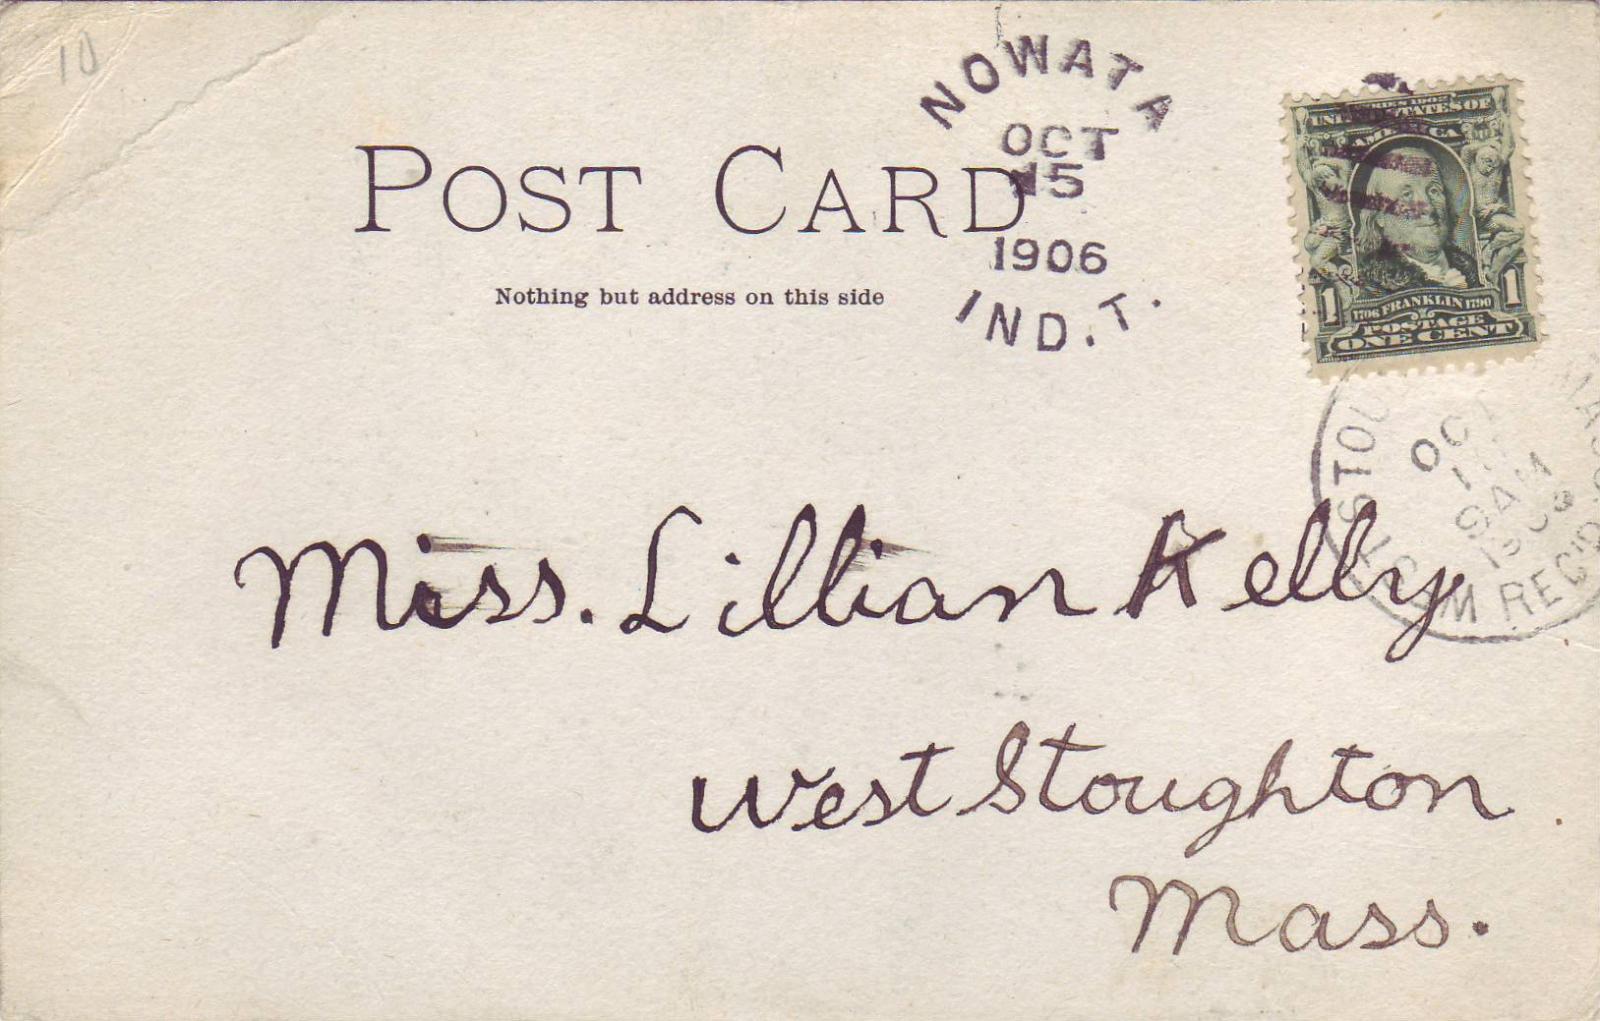 10
POST CARD
Nothing but address on this side
NOWATA
OCT
15
1906
IND. T.
SERIES 1902
UNITED STATES OF
AMERICA
1 1
1706 FRANKLIN 1790
POSTAGE
ONE CENT
OCT
9 AM
REC'D
Miss. Lillian Kelly
West Stoughton
Mass.